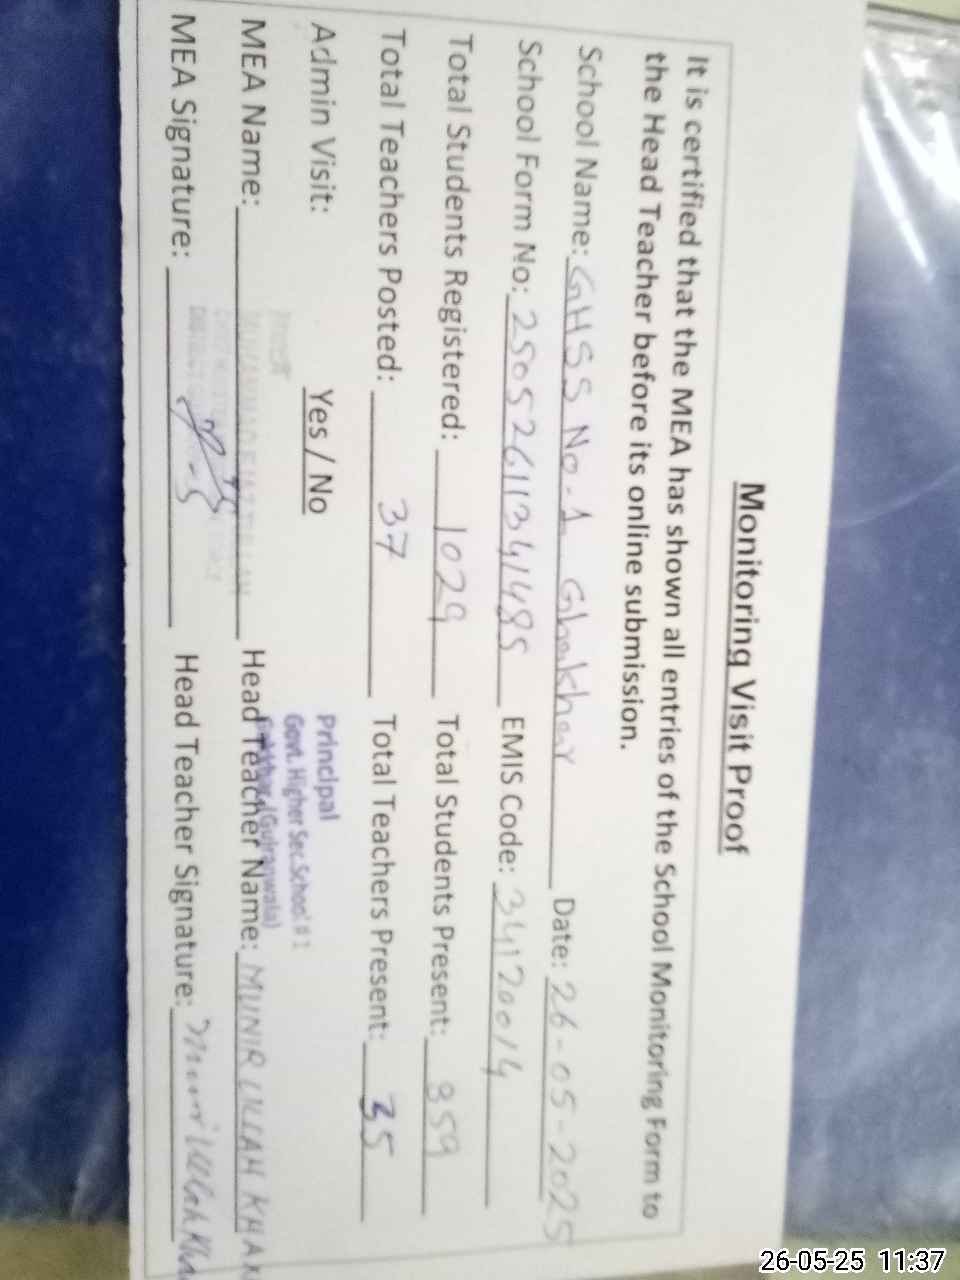 Monitoring Visit Proof
It is certified that the MEA has shown all entries of the School Monitoring Form to
the Head Teacher before its online submission.
School Name: GHSS No-1 Ghakhar Date: 26-05-2025
School Form No: 25052611341485 EMIS Code: 34120014
Total Students Registered: 1029 Total Students Present: 859
Total Teachers Posted: 37 Total Teachers Present: 35
Admin Visit: Yes / No
Principal
Govt. Higher Sec.School # 1
(Gujranwala)
MEA Name: Head Teacher Name: MUNIR ULLAH KHAN
MEA Signature: Head Teacher Signature:
26-05-25 11:37